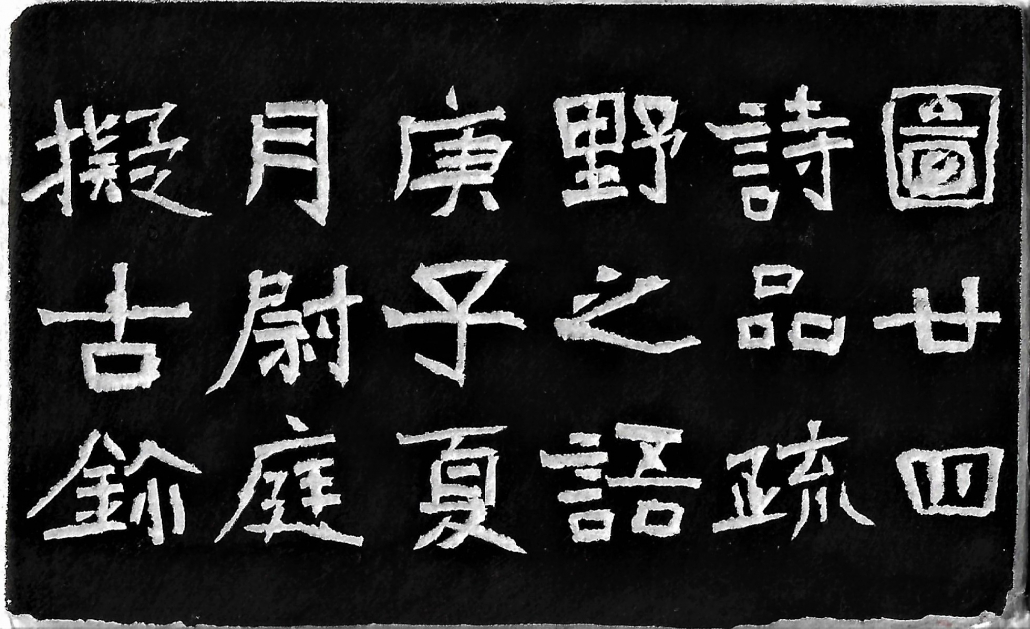 圖廿四
詩品疏
野之語
庚子夏
月尉庭
擬古鉨